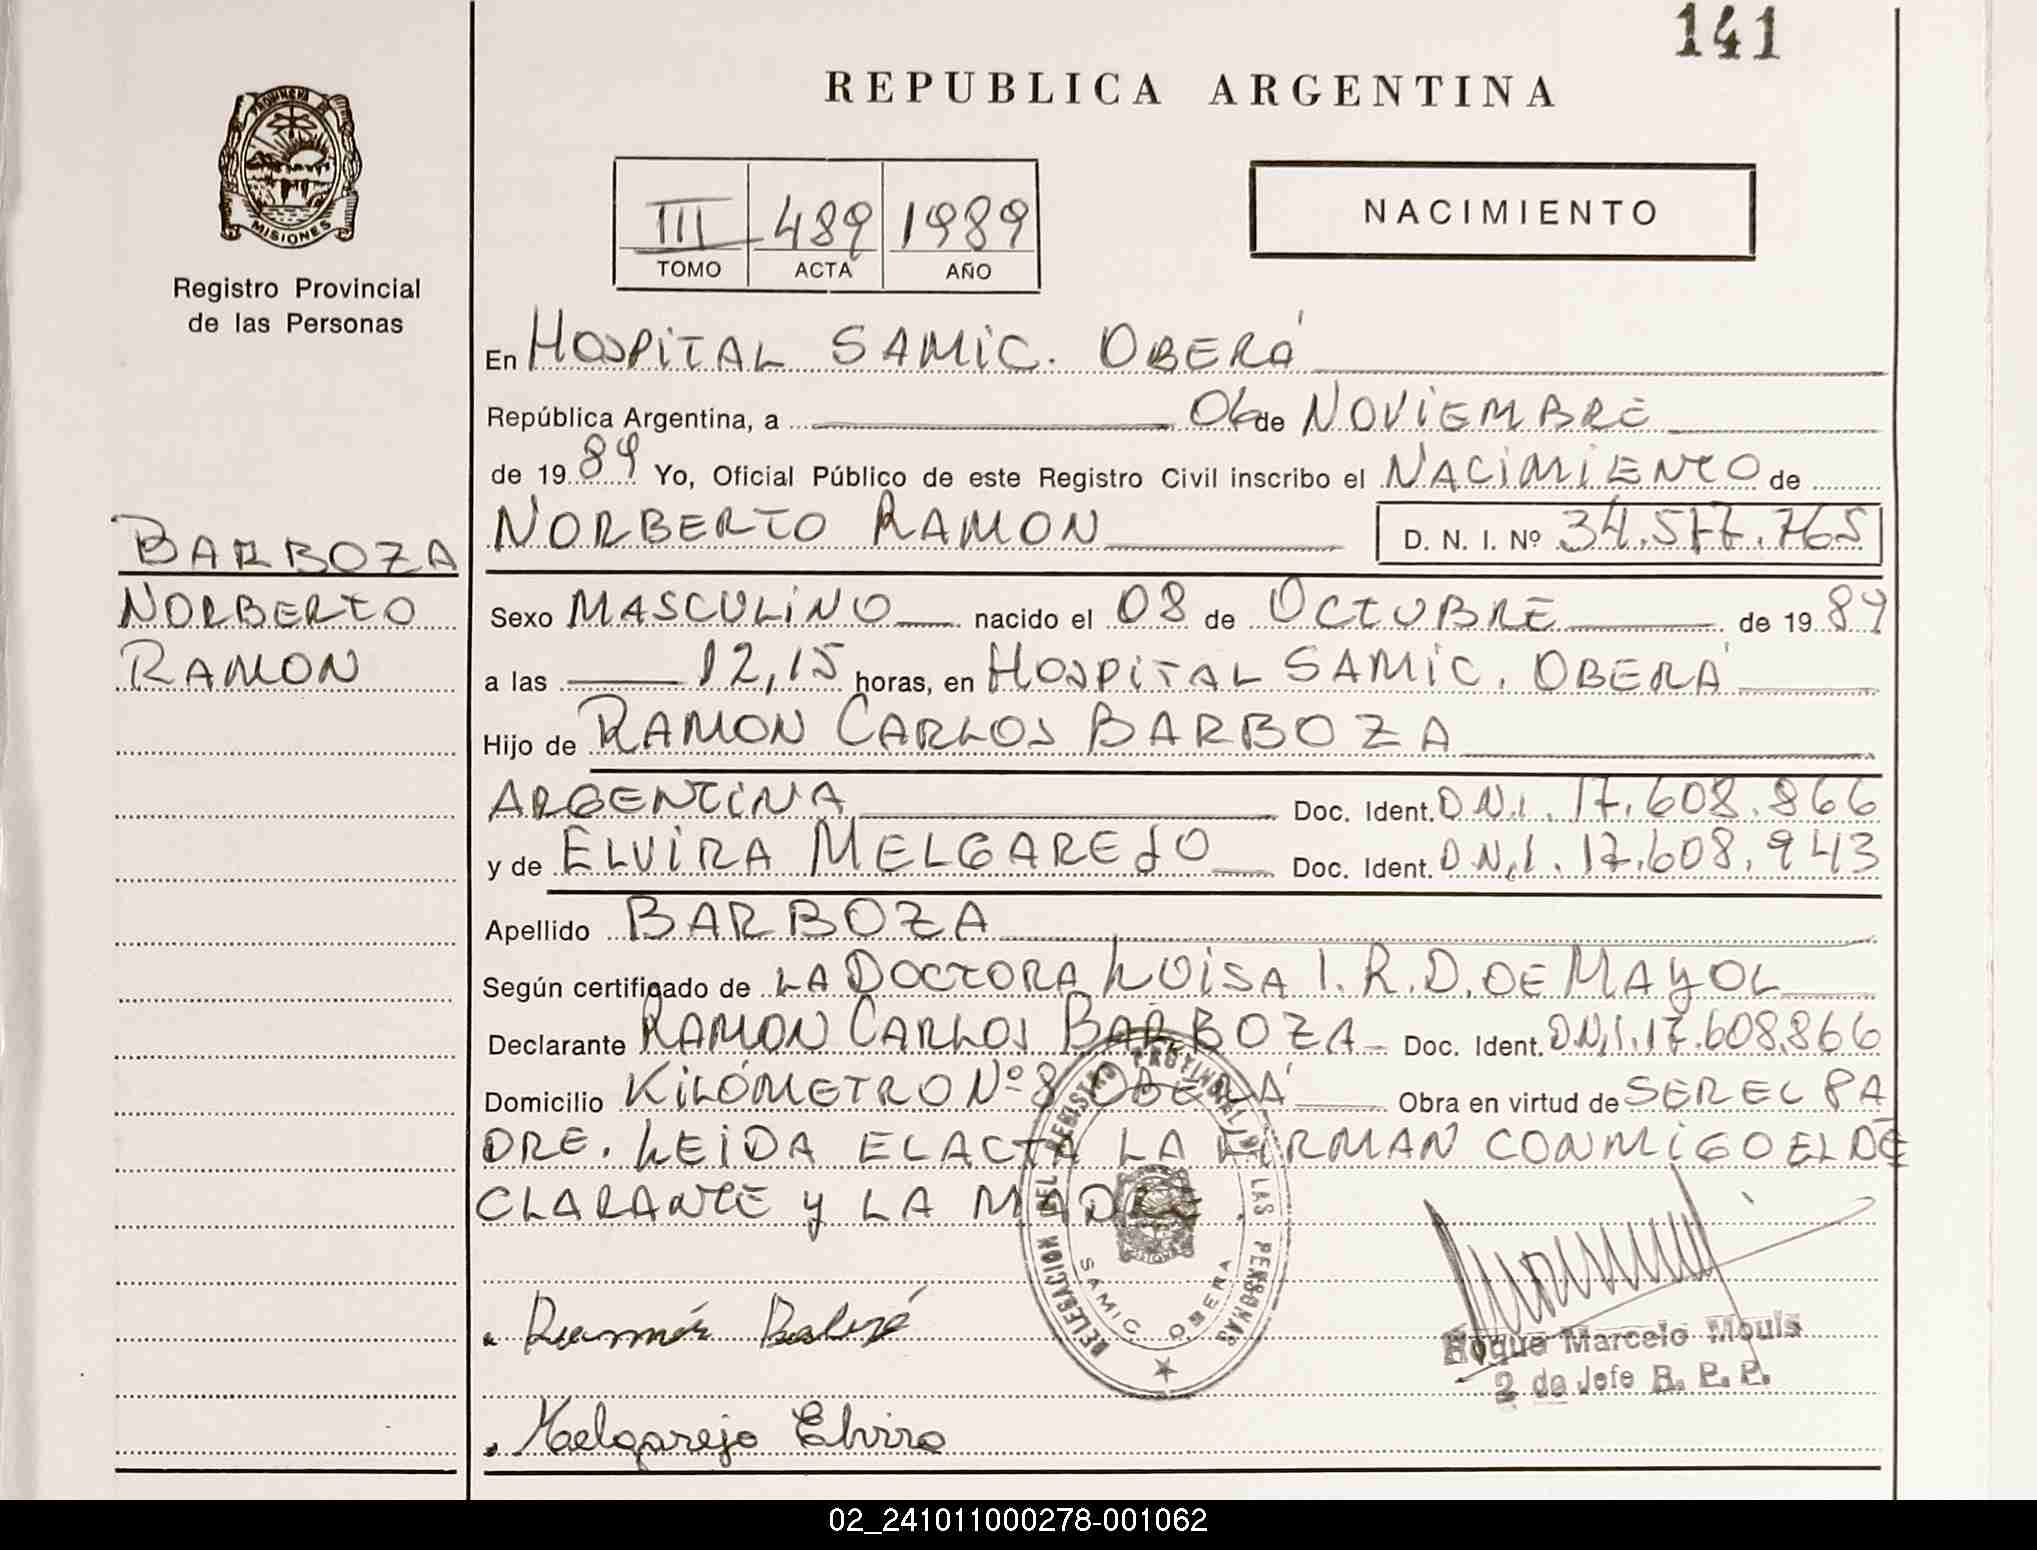 141
REPUBLICA ARGENTINA
PROVINCIA DE
MISIONES
Registro Provincial
de las Personas
III 489 1989
TOMO ACTA AÑO
NACIMIENTO
En HOSPITAL SAMIC. OBERÁ
República Argentina, a 06 de NOVIEMBRE
de 19 89 Yo, Oficial Público de este Registro Civil inscribo el NACIMIENTO de
NORBERTO RAMON D. N. I. Nº 34.577.765
BARBOZA
NORBERTO
RAMON
Sexo MASCULINO nacido el 08 de OCTUBRE de 19 89
a las 12,15 horas, en HOSPITAL SAMIC. OBERÁ
Hijo de RAMON CARLOS BARBOZA
ARGENTINA Doc. Ident. D.N.I. 17.608.866
y de ELVIRA MELGAREJO Doc. Ident. D.N.I. 17.608.943
Apellido BARBOZA
Según certificado de LA DOCTORA LUISA I. R. D. DE MAYOL
Declarante RAMON CARLOS BARBOZA Doc. Ident. D.N.I. 17.608.866
Domicilio KILÓMETRO Nº 8 OBERÁ Obra en virtud de SER EL PA
DRE. LEIDA EL ACTA LA FIRMAN CONMIGO EL DE
CLARANTE y LA MADRE.
DELEGACION DEL REGISTRO PROVINCIAL DE LAS PERSONAS
SAMIC OBERA
Roque Marcelo Mouls
2 da Jefe R. P. P.
Melgarejo Elvira
02_241011000278-001062